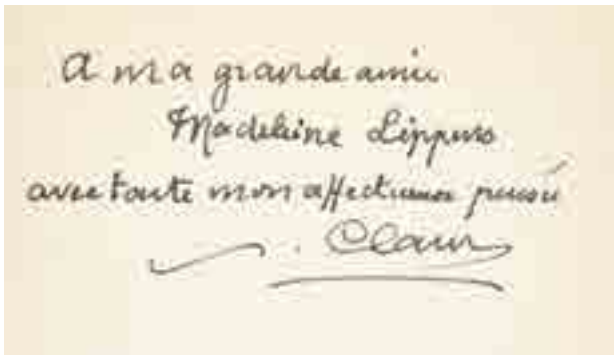 A ma grande amie
Madeleine Lippens
avec toute mon affectueuse pensée
Claire